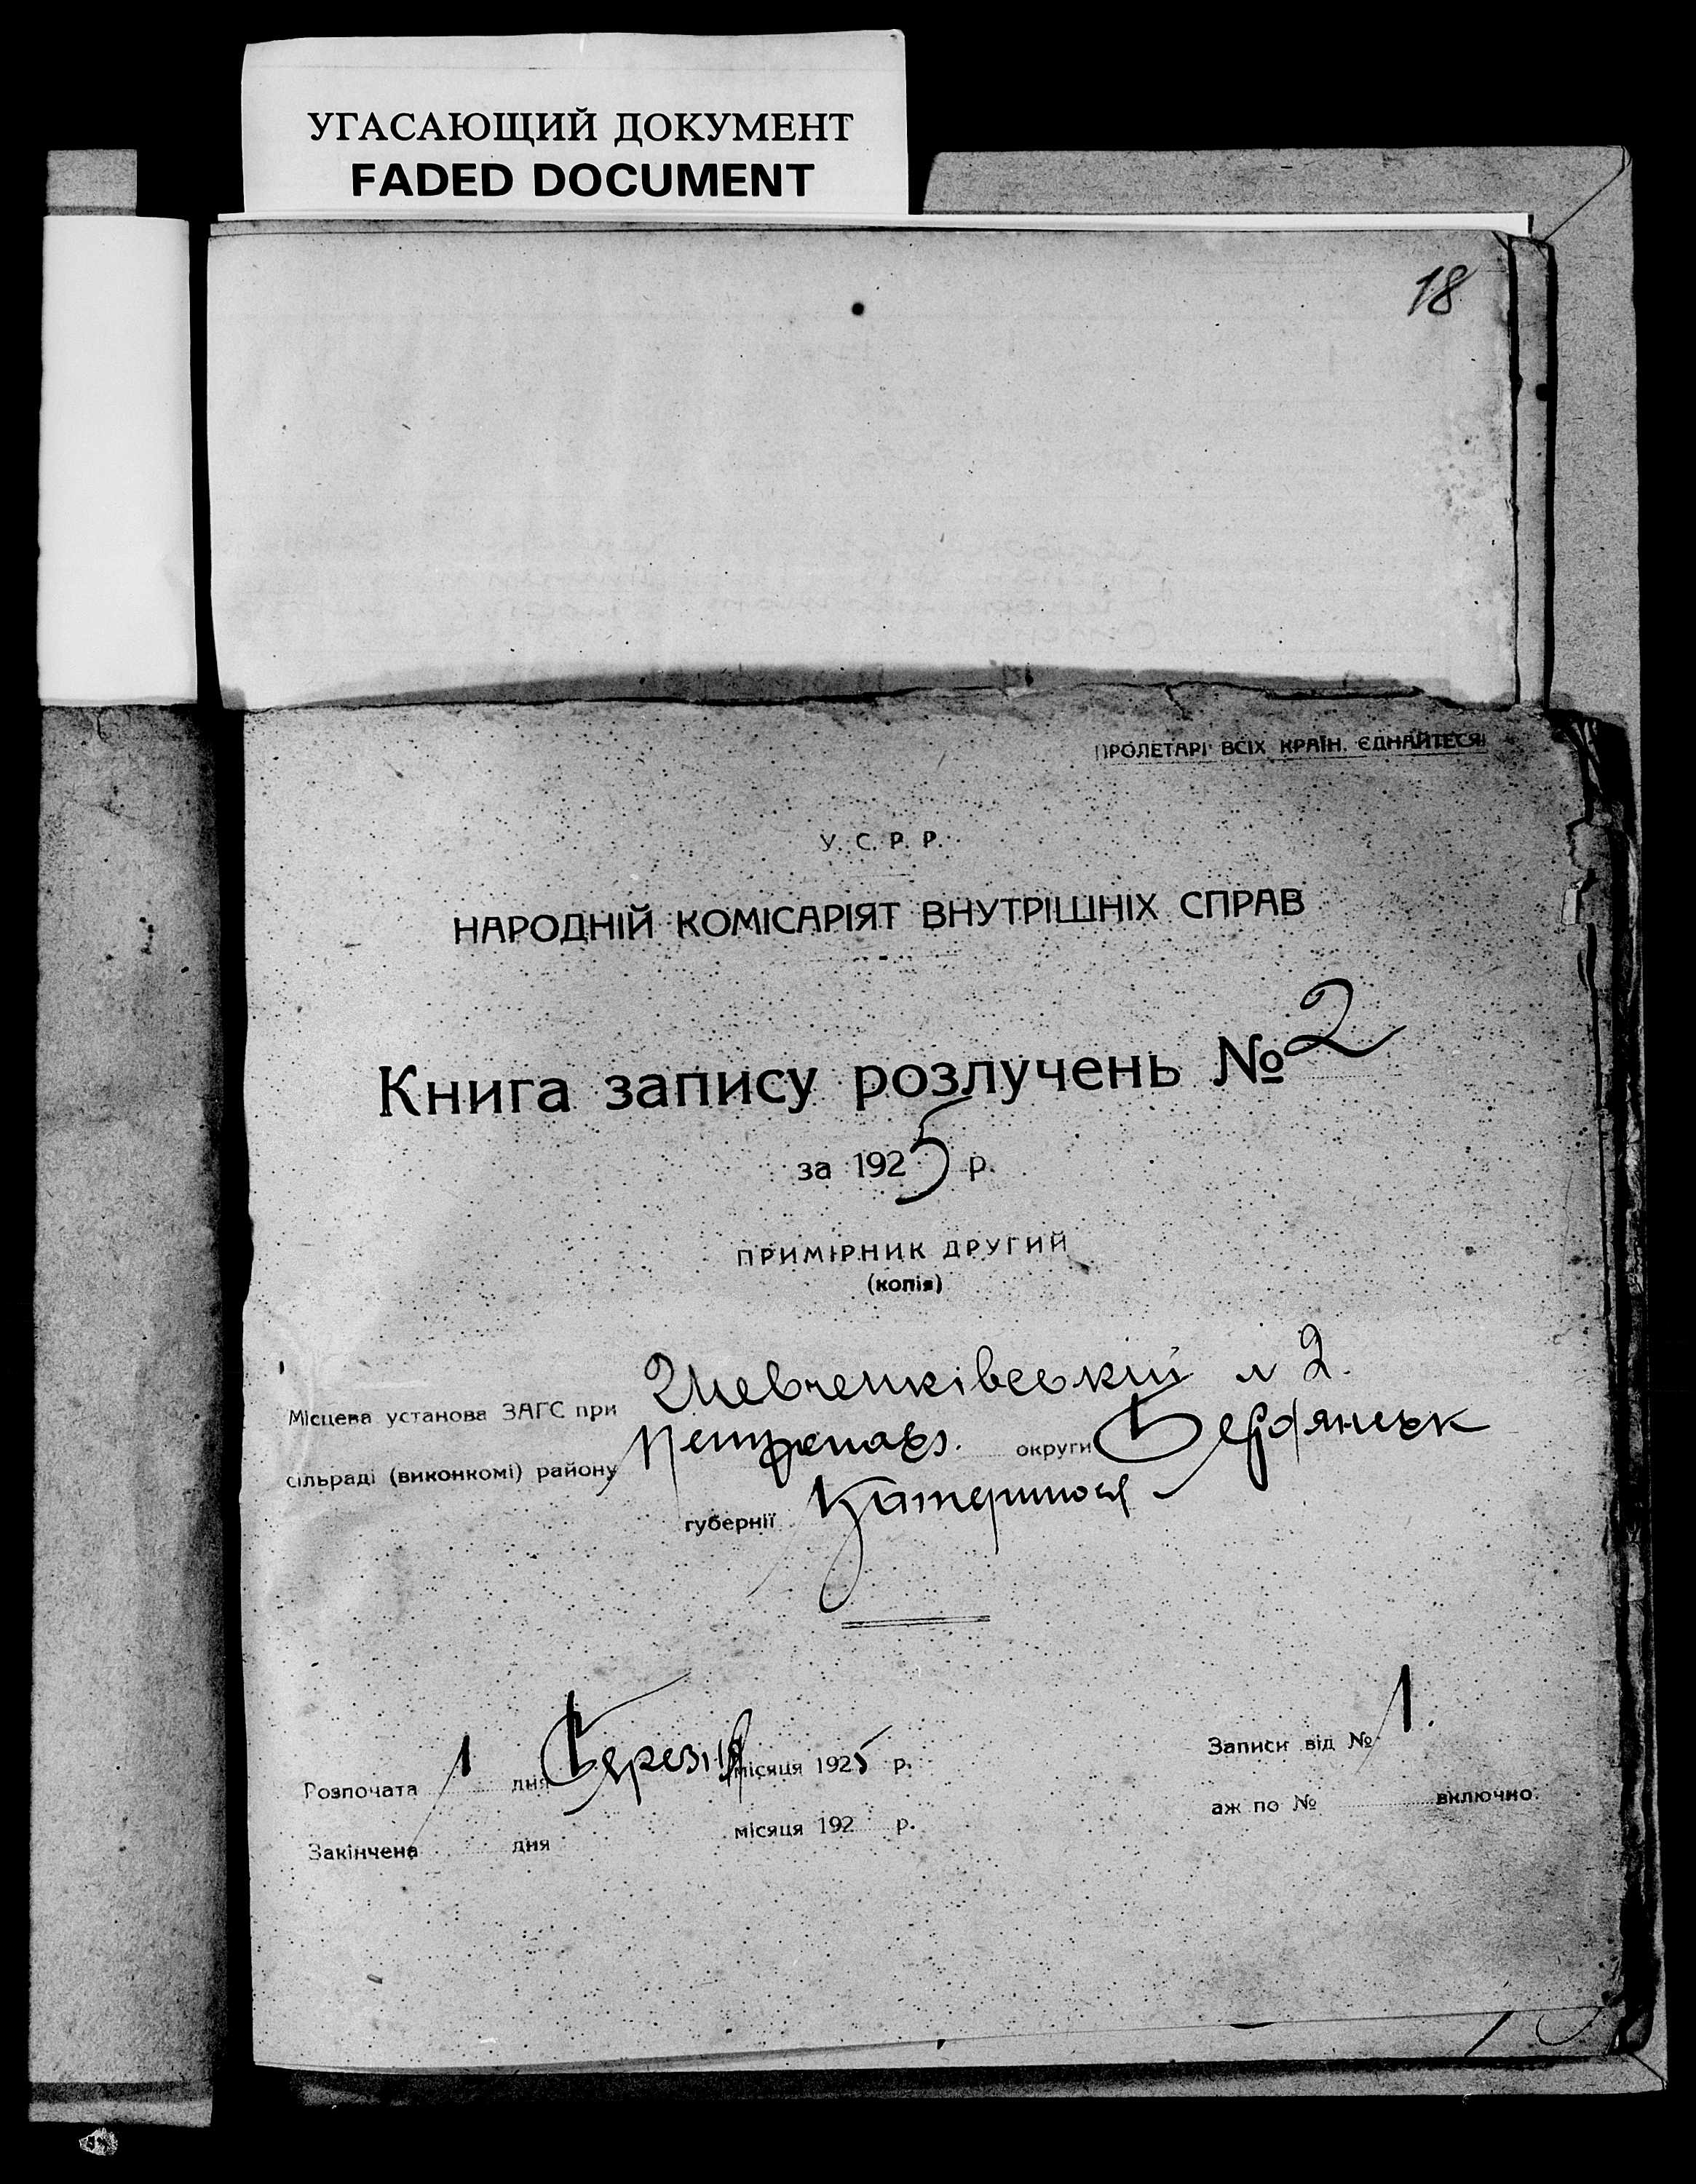 УГАСАЮЩИЙ ДОКУМЕНТ
FADED DOCUMENT
18
ПРОЛЕТАРІ ВСІХ КРАЇН, ЄДНАЙТЕСЯ!
У. С. Р. Р.
НАРОДНІЙ КОМІСАРІЯТ ВНУТРІШНІХ СПРАВ
Книга запису розлучень № 2
за 1925 р.
ПРИМІРНИК ДРУГИЙ
(копія)
Місцева установа ЗАГС при Шевченківський № 2.
сільраді (виконкомі) району округи Бердянськ
губернії Катеринося
Розпочата 1 дня Березня місяця 1925 р.
Закінчена дня місяця 192 р.
Записи від № 1.
аж по № включно.